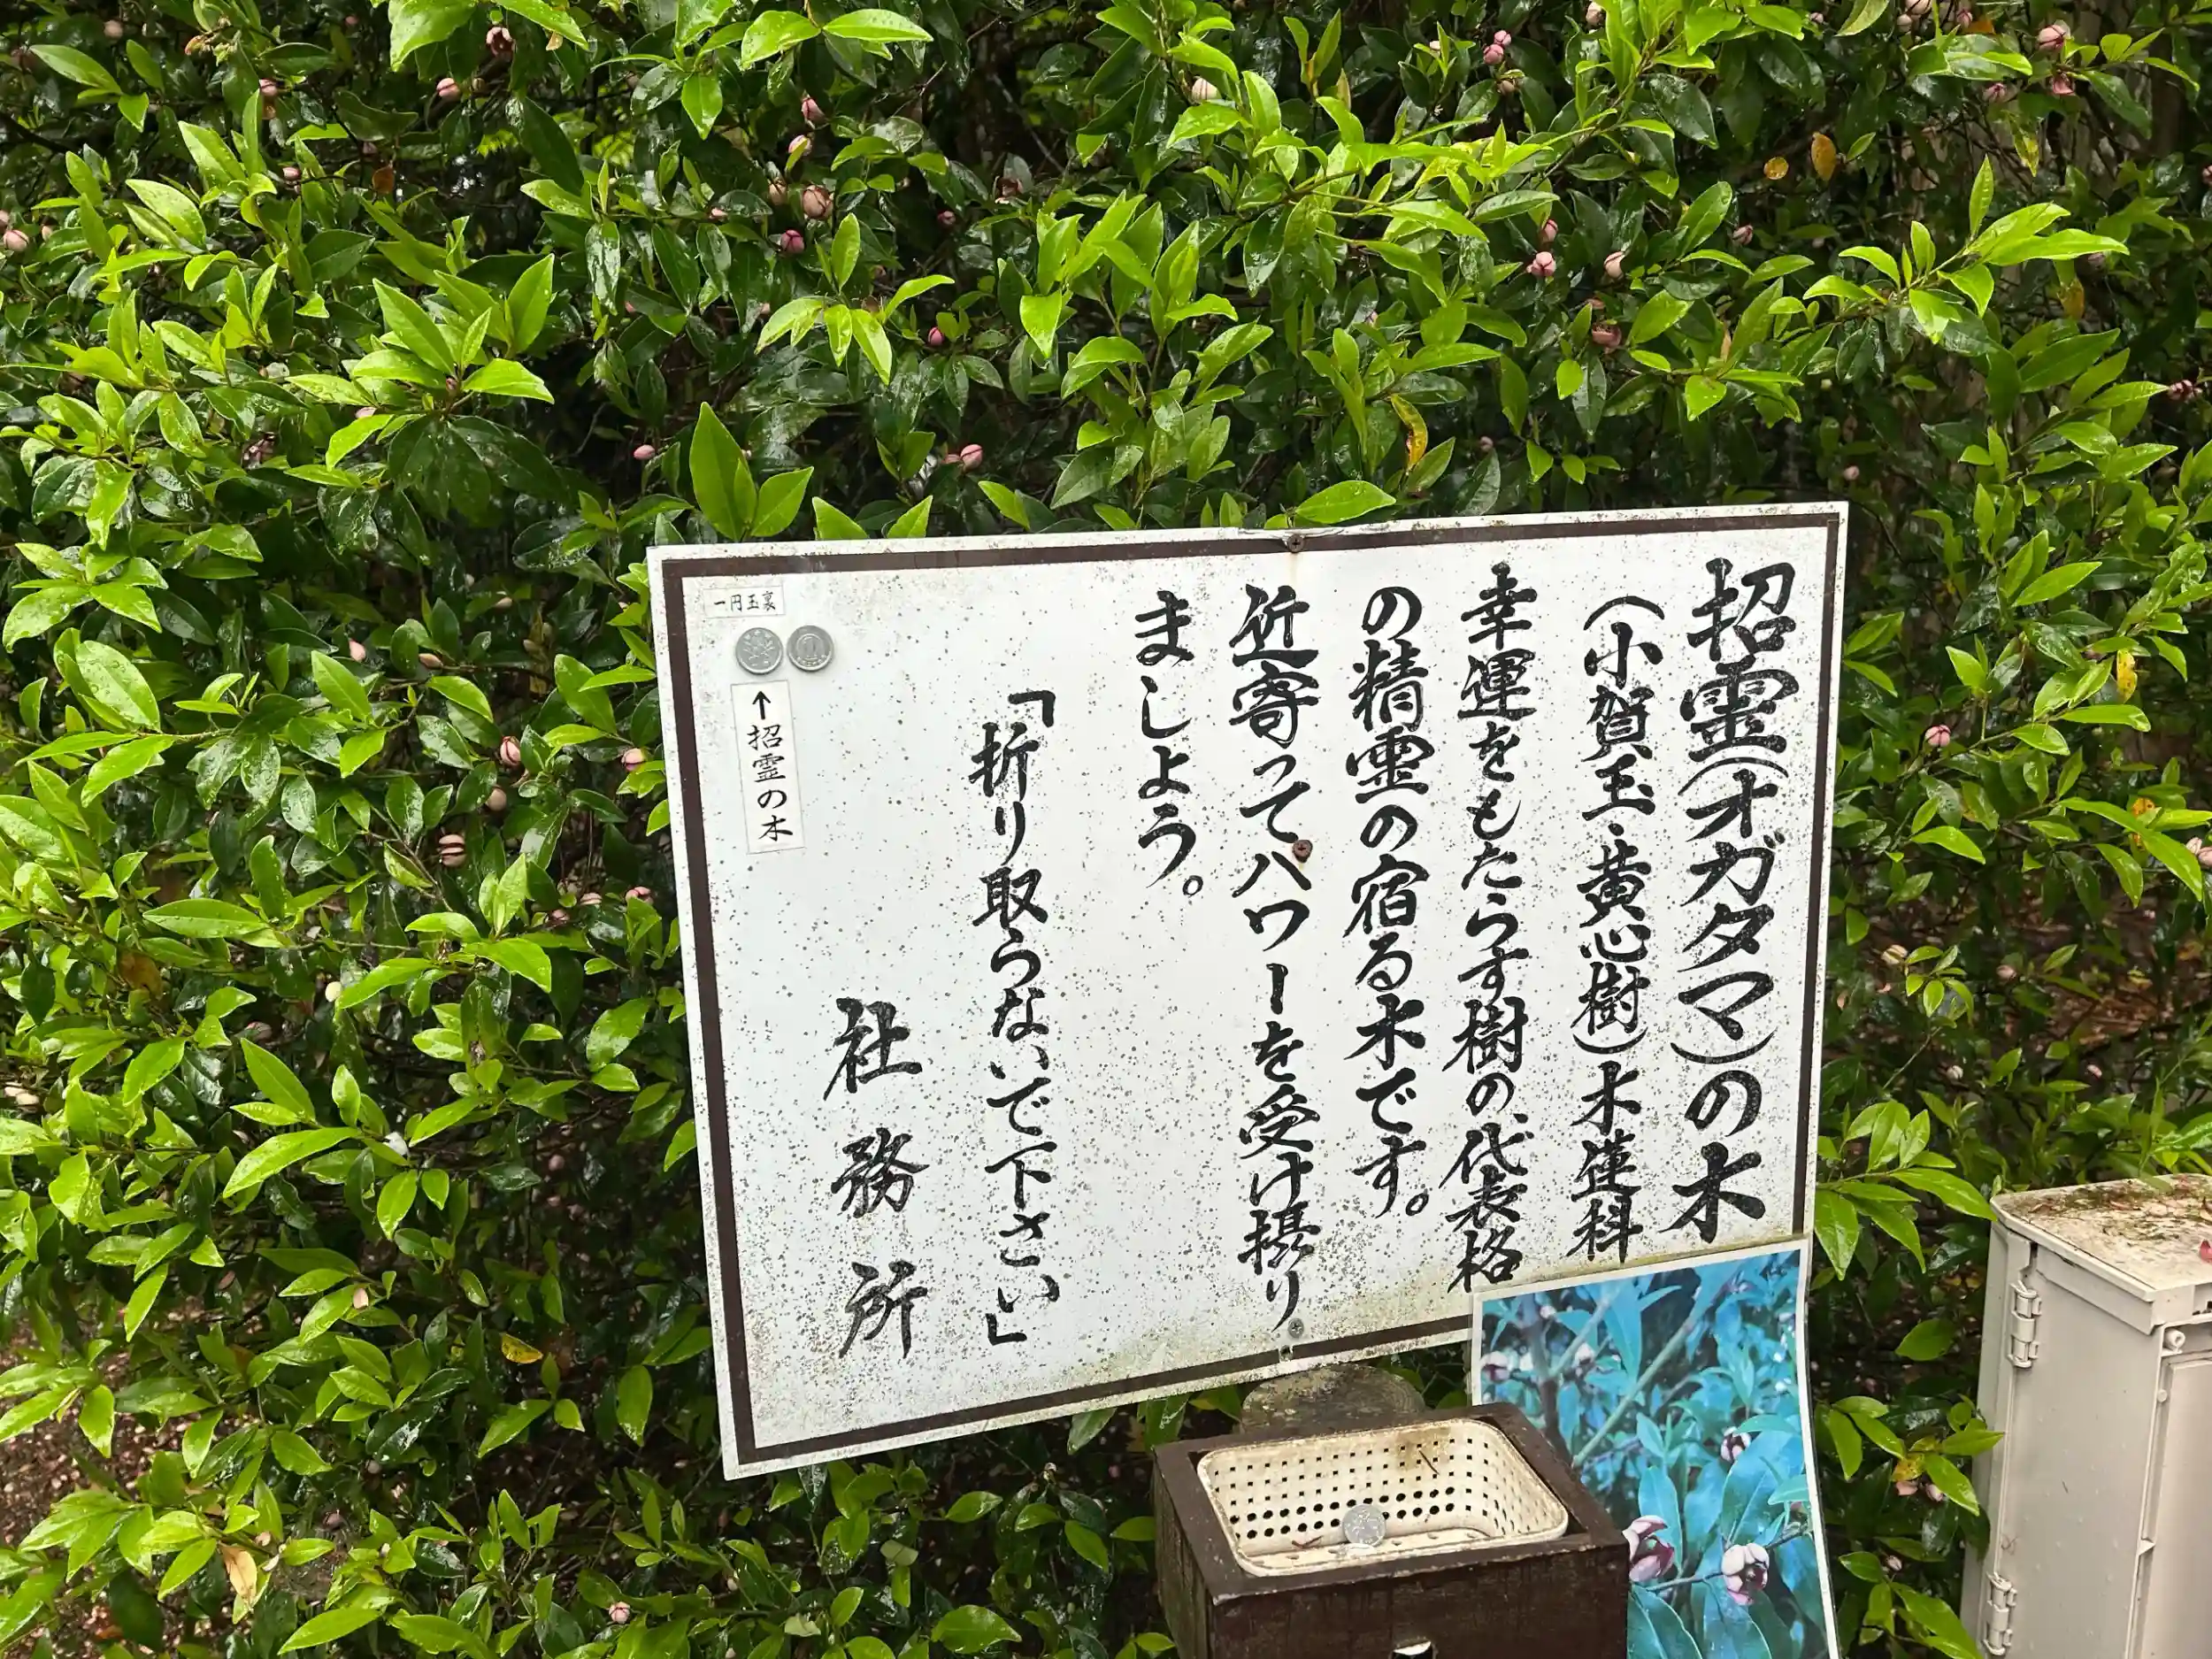 招霊(オガタマ)の木
(小賀玉・黄心樹)木蓮科
幸運をもたらす樹の、代表格
の精霊の宿る木です。
近寄ってパワーを受け摂り
ましょう。
「折り取らないで下さい」
社務所
一円玉裏
↑招霊の木